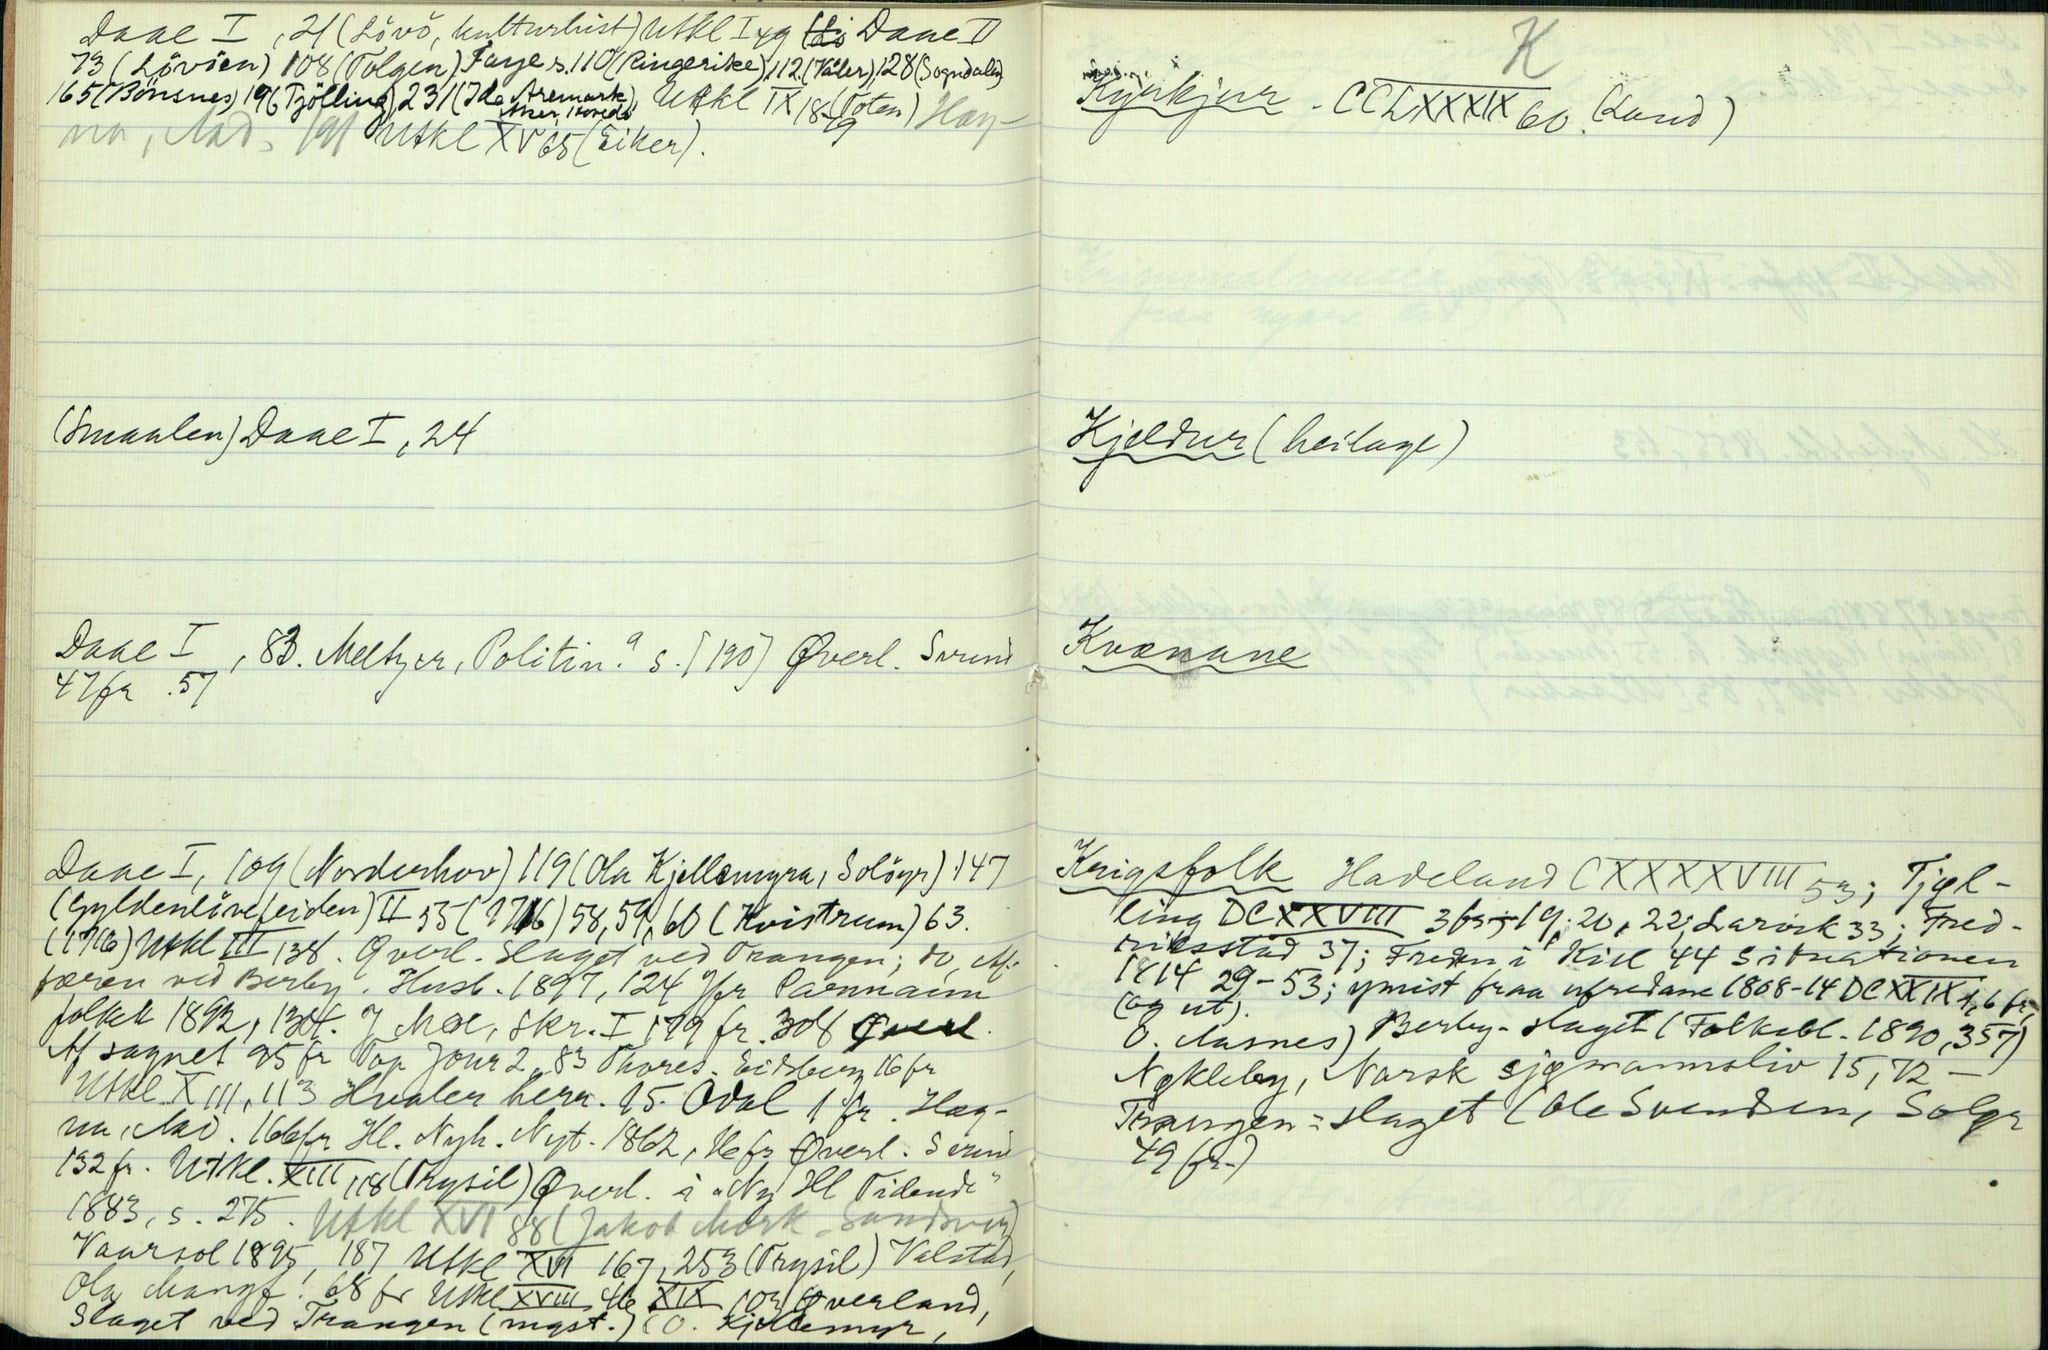 Daae I, 21 (Lövö, kulturhist) Utkl I 49 Daae II
73 (Lövöen) 108 (Tolgen) Faye s. 110 (Ringerike), 112 (Våler), 128 (Sogndalen)
165 (Bönsnes) 196 Tjölling), 231 (Ide Aremark Utkl IX 18-19 (Toten) Hag-
na, Aad. 191 Utkl XV 65 (Eiker).
(Smaalen) Daae I, 24
Daae I, 83. Meltzer, Politin. s. [190] Øverl. Svund
47 fr. 57
Daae I, 109 (Norderhov) 119 (Ola Kjellemyra, Solöyr) 147
(Gyldenlövefeiden) II 55 (1716) 58, 59, 60 (Kvistrum) 63.
(1716) Utkl III 138. Øverl. Slaget ved Trangen; do, Af-
færen ved Berby. Husb. 1897, 124 Jfr
folkek 1892, 134. J Moe, Skr. I 179 fr. 308 Øverl.
Af sagnet 95 fr Top Jour 2, 83 Thores. Eidsberg 16 fr
Utkl XIII, 113 Hvaler herr. 15. Odal 1 fr. Hag-
na, Aad. 166 fr Ill. Nyh. 1862, 16 fr Øverl. Svund
132 fr. Utkl. XIII 118 (Trysil) Øverl. i "Ny Ill Tidende"
1883, s. 275. Utkl XVI 88 (Jakob Mork Sandsvær)
Vaarsol 1895, 187 Utkl XVI 167, 253 (Trysil) Valstad,
Ola Mangf! 68 fr Utkl XVIII 46 XIX 103 Øverland,
Slaget ved Trangen (mgst.) O. Kjellemyr,
K
Kyrkjur - CCLXXXIX 60. (Land)
Kjeldur (heilage)
Kvænane
Krigsfolk Hadeland CXXXXVIII 53; Tjøl-
ling DCXXVIII 3 fr, 19, 20, 22; Larvik 33; Fred-
riksstad 37; Freden i Kiel 44 Situationen
1814 29-53; ymist fraa ufredane 1808-14 DCXXIX 1, 6 fr,
(og ut).
O. Aasnes) Berby-slaget (Folkebl. 1890, 357)
Nøkleby, Norsk sjømannsliv 15, 72 -
Trangen=slaget (Ole Svendsen, Solør
49 fr.)